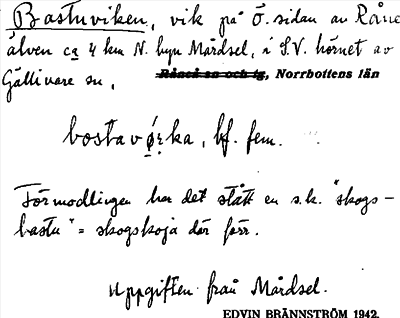 Bastuviken, vik på Ö. sidan av Råne
älven ca 4 km N. byn Mårdsel, i S.V. hörnet av
Gällivare sn,
Råneå sn och tg, Norrbottens län
bostavø̨ka, bf. fem.
Förmodligen har det stått en s.k. "skogs-
bastu" = skogskoja där förr.
Uppgiften från Mårdsel.
EDVIN BRÄNNSTRÖM 1942.